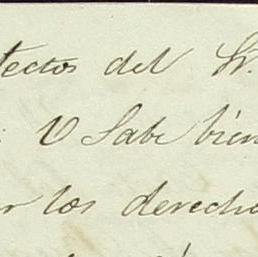 fectos del Sr.
V Sabe bien
r los derecho